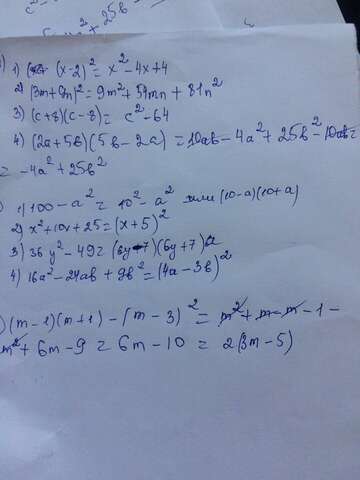 1) (x-2)² = x² - 4x + 4
2) (3m + 9n)² = 9m² + 54mn + 81n²
3) (c+8)(c-8) = c² - 64
4) (2a + 5b)(5b - 2a) = 10ab - 4a² + 25b² - 10ab =
= -4a² + 25b²
1) 100 - a² = 10² - a² или (10-a)(10+a)
2) x² + 10x + 25 = (x+5)²
3) 36y² - 49 = (6y-7)(6y+7)
4) 16a² - 24ab + 9b² = (4a - 3b)²
) (m-1)(m+1) - (m-3)² = m² + m - m - 1 -
m² + 6m - 9 = 6m - 10 = 2(3m - 5)